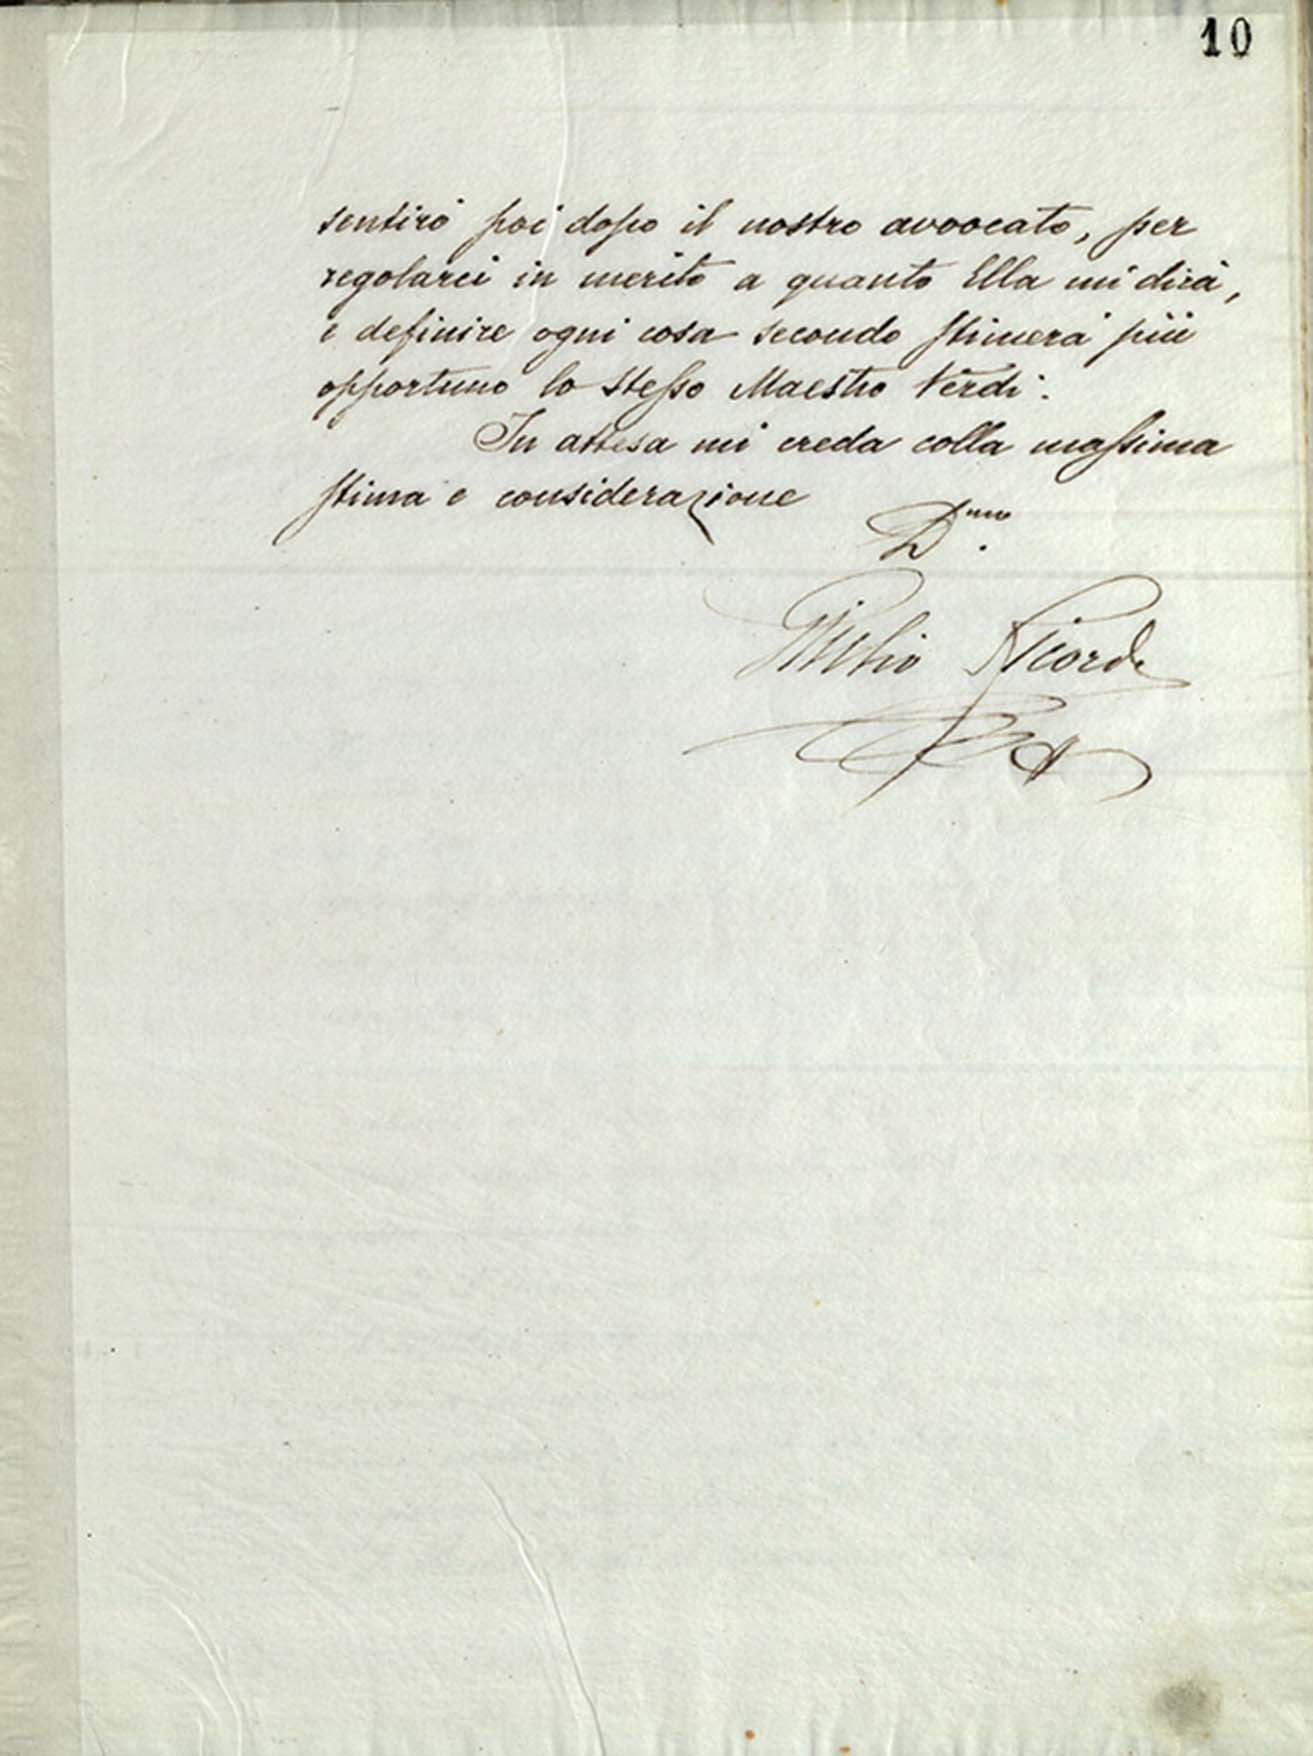 10
sentirò poi dopo il nostro avvocato, per
regolarci in merito a quanto Ella mi dirà,
e definire ogni cosa secondo stimerà più
opportuno lo stesso Maestro Verdi.
In attesa mi creda colla massima
stima e considerazione
D.mo
Giulio Ricordi